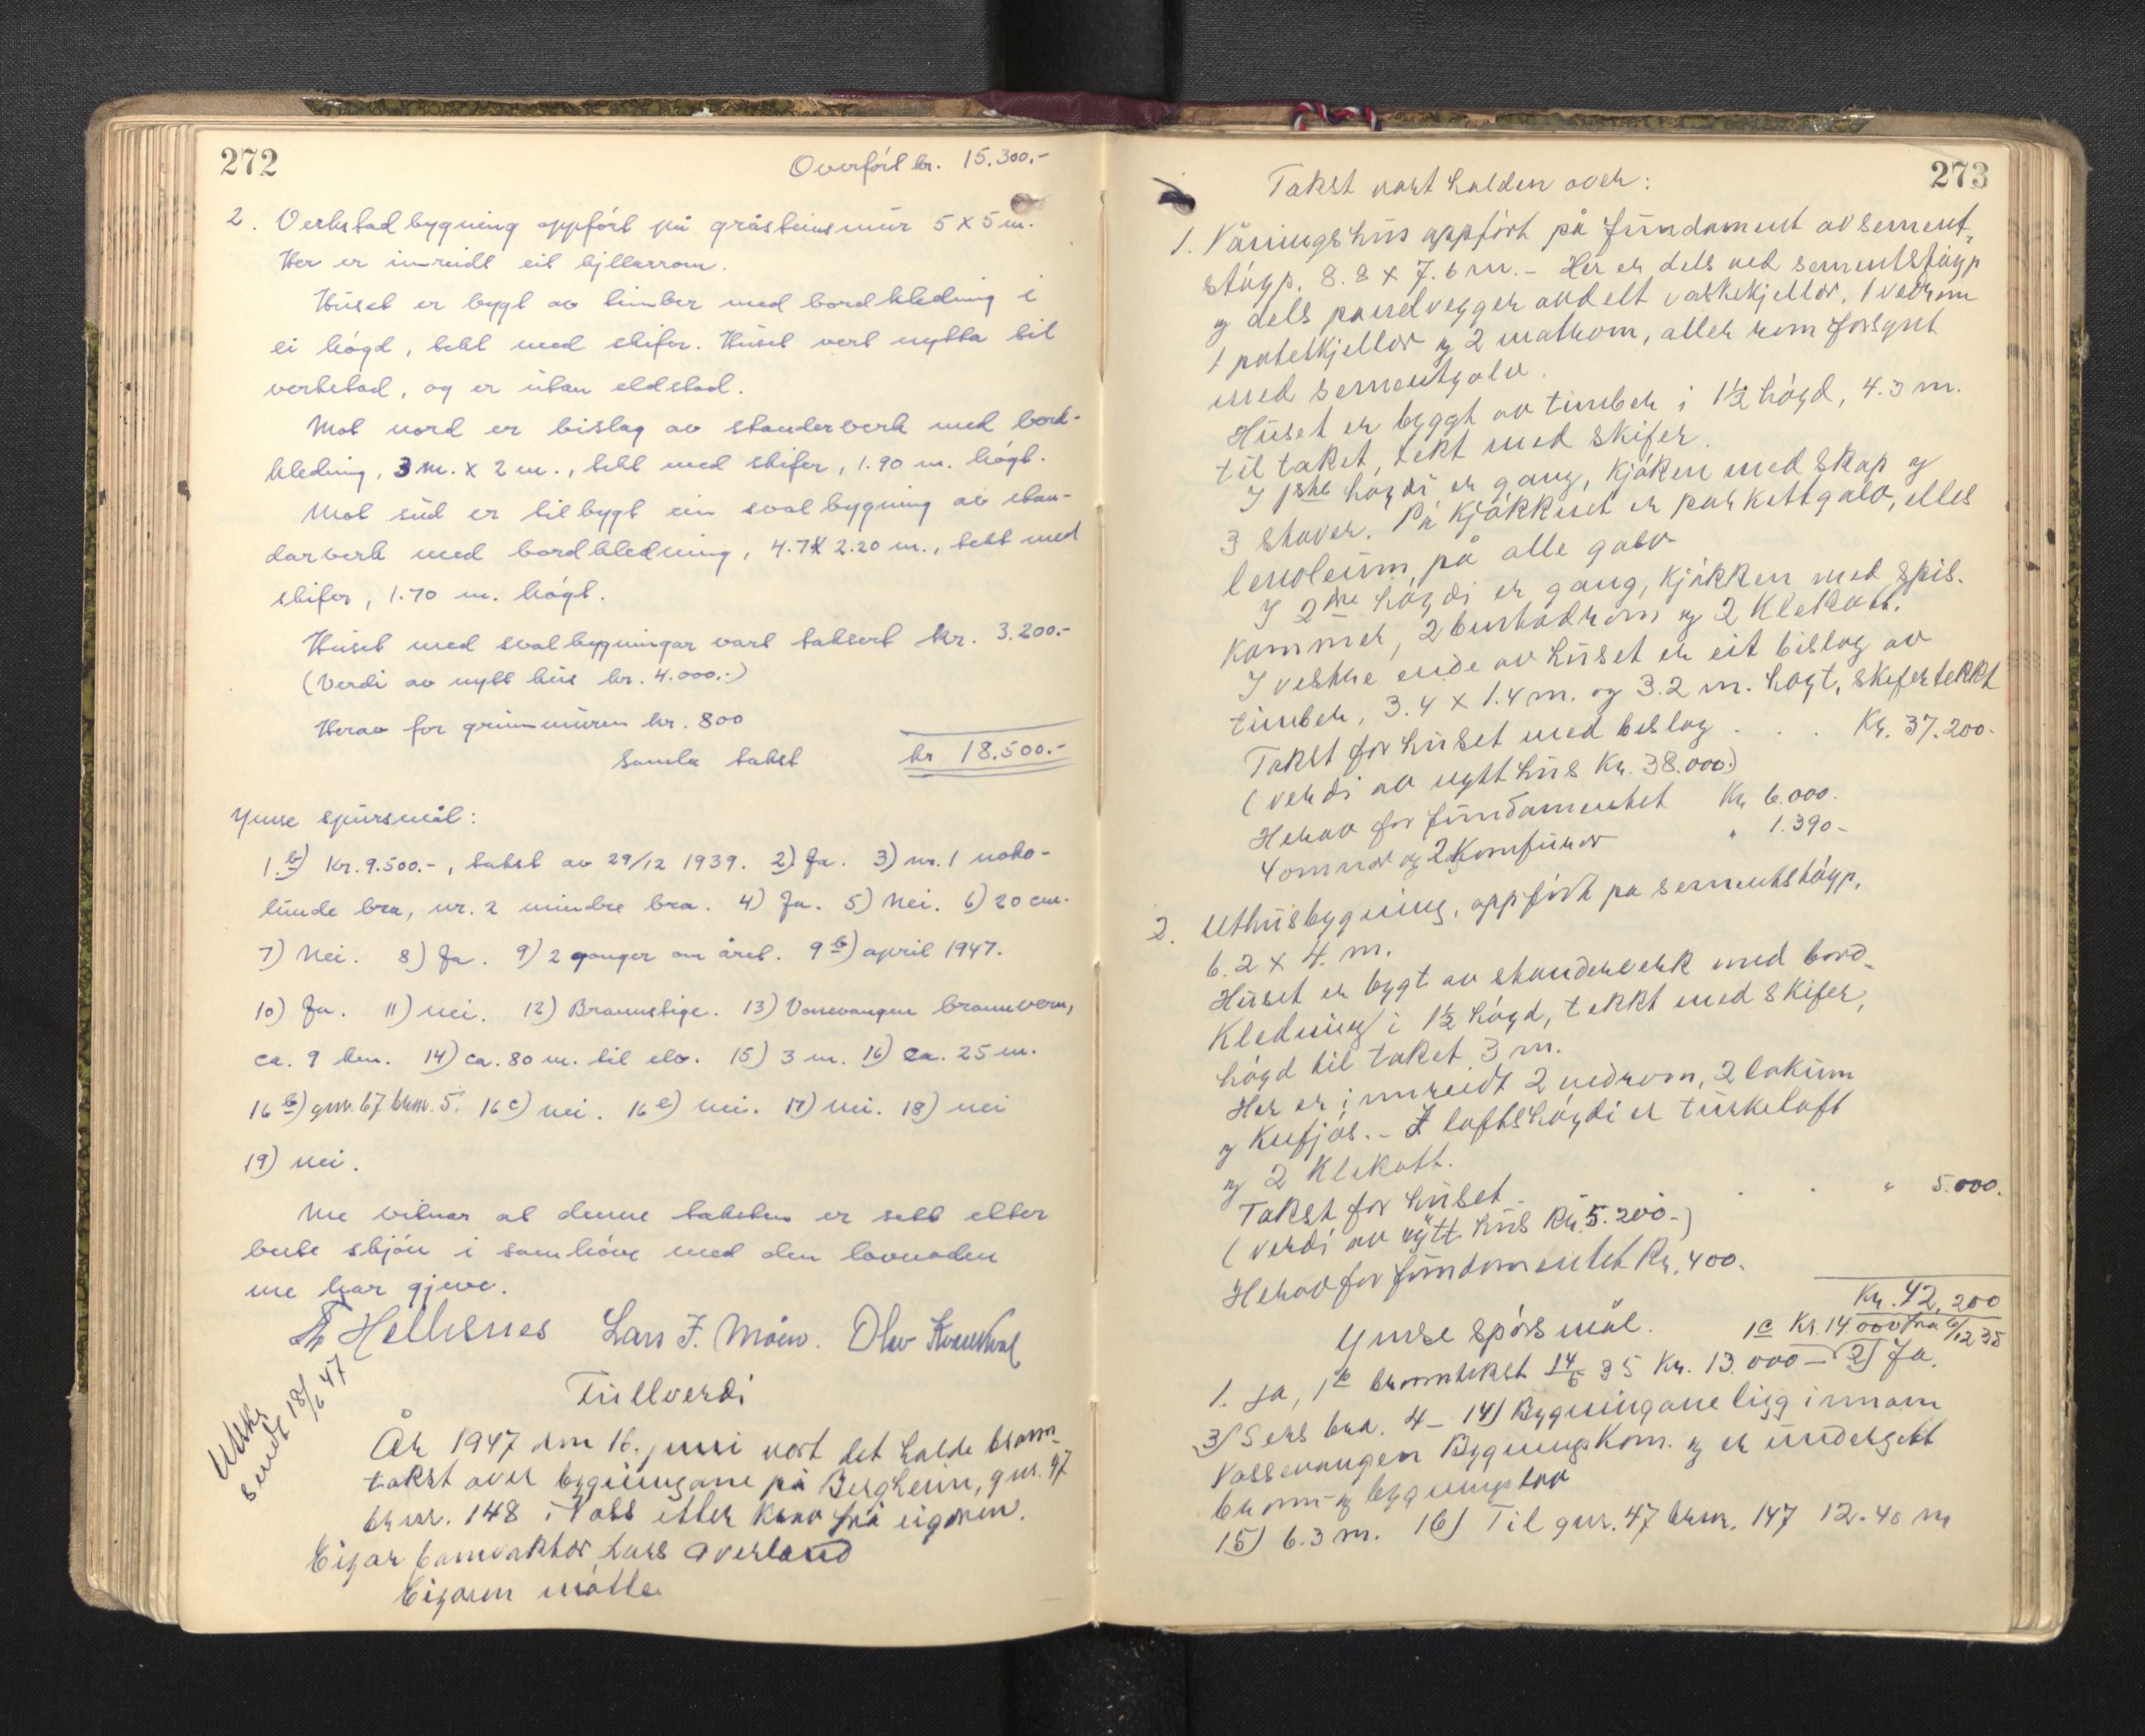 272
Overført kr. 15.300.-
2. Verkstadbygning oppført på gråsteinsmur 5 x 5 m.
Her er innreidt eit kjellarrom.
Huset er bygt av timber med bordkledning i
ei høgd, tekt med skifer. Huset vert nytta til
verkstad, og er utan eldstad.
Mot nord er bislag av standerverk med bord-
kledning, 3 m. x 2 m., tekt med skifer, 1.90 m. høgt.
Mot sud er tilbygt ein svalbygning av stan-
darverk med bordkledning, 4.7 x 2.20 m., tekt med
skifer, 1.70 m. høgt.
Huset med svalbygningar vart taksert kr. 3.200.-
(Verdi av nytt hus kr. 4.000.-)
Herav for grunnmuren kr. 800
Samla takst kr 18.500.-
Ymse spursmål:
1.b) Kr. 9.500.-, takst av 29/12 1939. 2) Ja. 3) nr. 1 noko-
lunde bra, nr. 2 mindre bra. 4) Ja. 5) Nei. 6) 20 cm.
7) Nei. 8) Ja. 9) 2 gonger om året. 9b) april 1947.
10) Ja. 11) nei. 12) Brannstige. 13) Vossevangen brannvern,
ca. 9 km. 14) ca. 80 m. til elv. 15) 3 m. 16) ca. 25 m.
16b) gnr. 67 brnr. 5. 16c) nei. 16e) nei. 17) nei. 18) nei
19) nei.
Me vitnar at denne taksten er sett etter
beste skjøn i samhøve med den lovnaden
me har gjeve.
Hellesnes Lars J. Møen. Olav
Utskr.
sendt 18/6 47
Fullverdi
År 1947 den 16. juni vart det halde brann-
takst over bygningane på Bergheim, gnr. 47
brnr. 148 i Voss etter krav frå eigaren.
Eigar banevaktar Lars Øverland
Eigaren møtte
273
Takst vart halden over:
1. Våningshus oppført på fundament av sement-
støyp, 8.8 x 7.6 m. - Her er dels ved sementstøyp
og dels panelvegger avdelt vaskekjellar, 1 vedrom
1 potetkjellar og 2 matrom, aller rom forsynt
med sementgolv.
Huset er byggt av timber i 1 1/2 høgd, 4.3 m.
til taket, tekt med skifer.
I 1ste høgdi er gang, kjøken med skap og
3 stover. På kjøkkenet er parkettgolv, elles
lenoleum på alle golv
I 2dre høgdi er gang, kjøkken med spis-
kammer, 2 burhadrom og 2 klekott.
I vestre ende av huset er eit bislag av
timber, 3.4 x 1.4 m. og 3.2 m. høgt, skifertekkt
Takst for huset med beslag . . . Kr. 37.200-
(verdi av nytt hus Kr. 38.000.)
Herav for fundamentet Kr 6.000.
4 omnar og 2 komfurar " 1.390-
2. Uthusbygning, oppført på sementstøyp,
6.2 x 4. m.
Huset er bygt av standerverk med bord-
kledning i 1 1/2 høgd, tekkt med skifer,
høgd til taket 3 m.
Her er innreidt 2 vedrom, 2 lokum
og kufjøs. - I loftshøgdi er turkeloft
og 2 klekott.
Takst for huset . . . " 5.000.
(verdi av nytt hus Kr. 5.200-)
Herav for fundamentet Kr. 400.
Kr. 42.200
Ymse spørsmål. 1c Kr. 14.000 frå 6/12 35
1. Ja, 1b branntakst 14/6 35 Kr. 13.000 - 2) Ja.
3) Sers bra. 4 - 14) Bygningane ligg innom
Vossevangen Bygningskom. og er undergitt
brann- og bygningslov
15) 6.3 m. 16) Til gnr. 47 brnr. 147 12.40 m